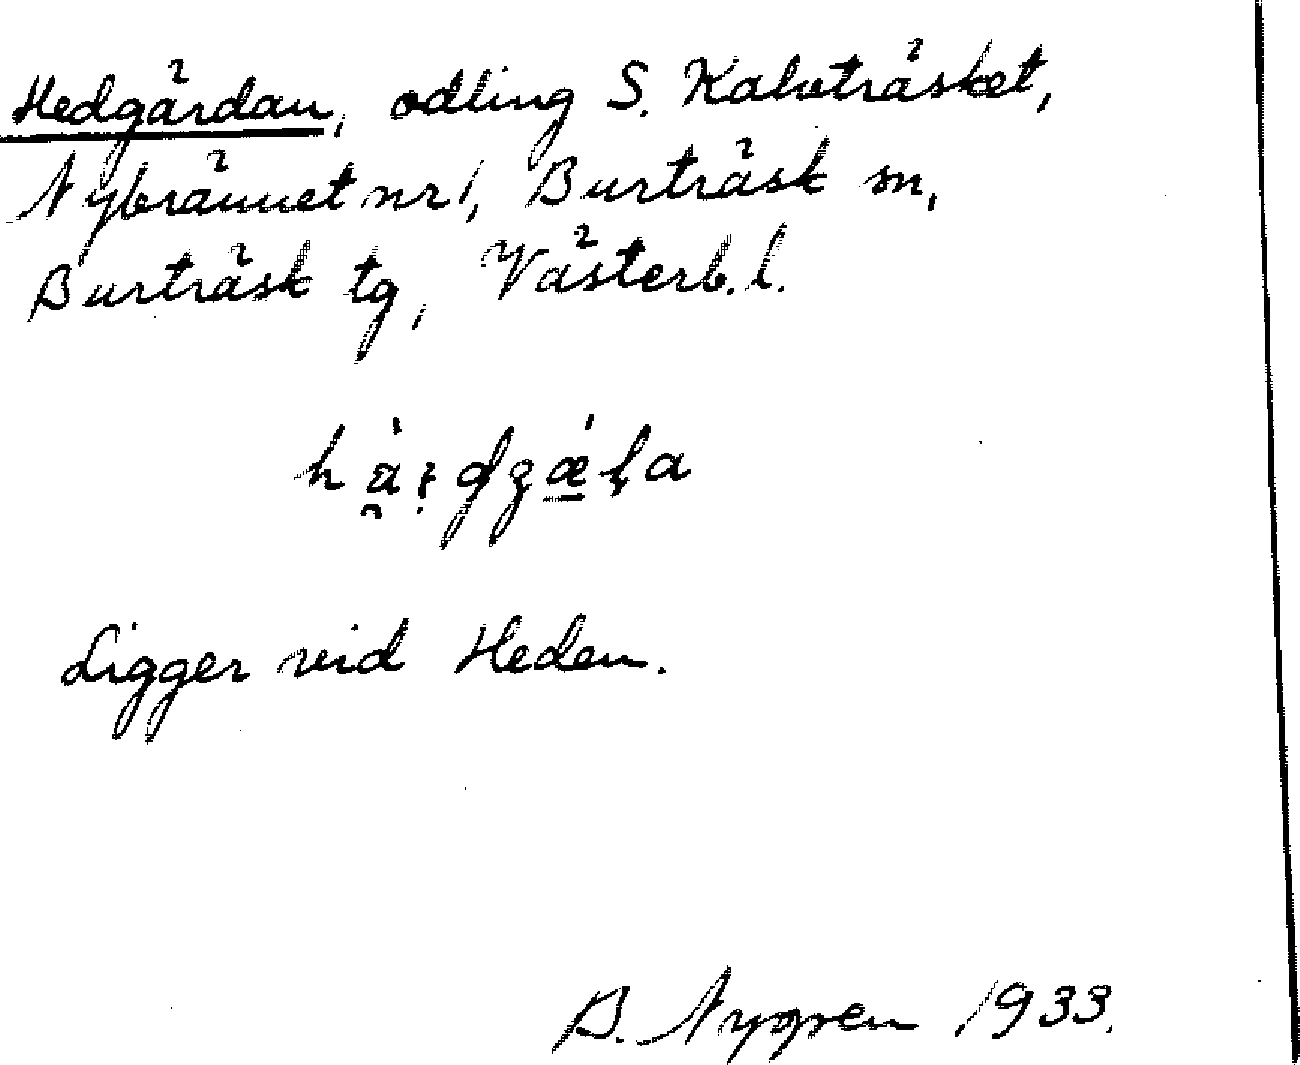 Hedgärdan, odling S. Kalvträsket,
Nybrännet nr 1, Burträsk sn,
Burträsk tg, Västerb. l.
Ligger vid Heden.
B. Nygren 1933.